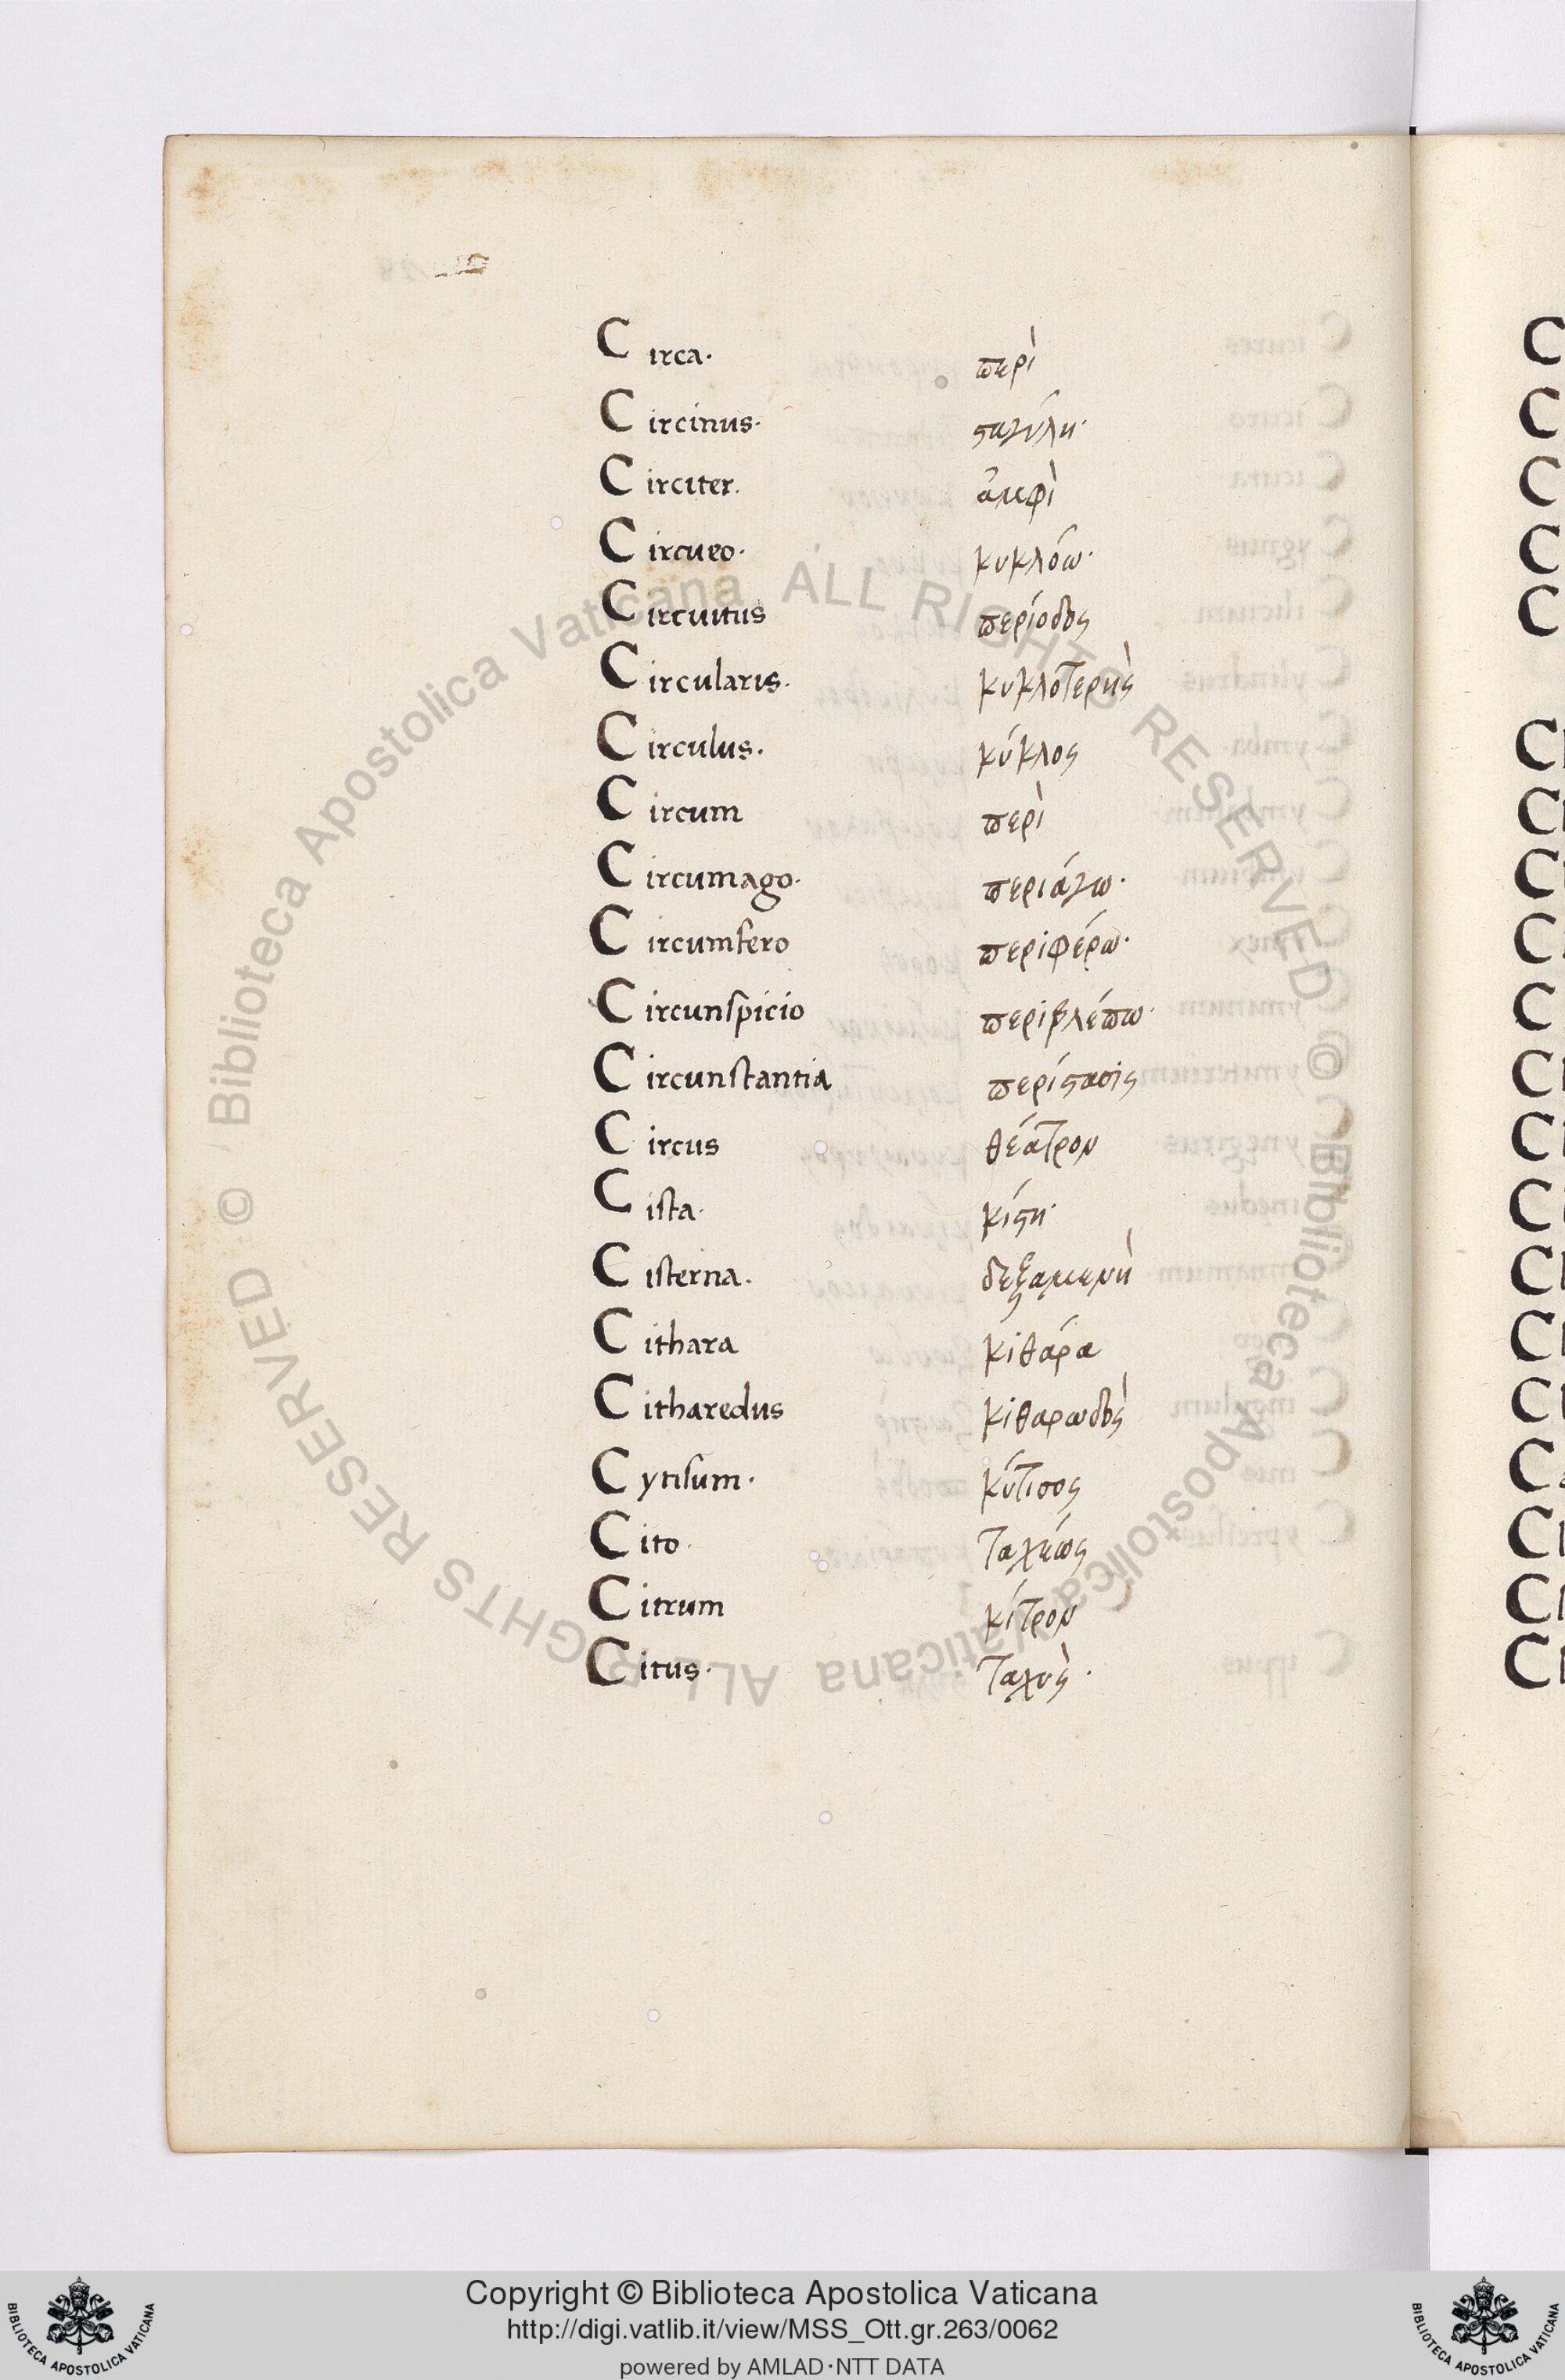 Circa. περὶ
Circinus. σταγύλη.
Circiter. ἀμφὶ
Circueo. κυκλόω.
Circuitus περίοδος
Circularis. κυκλοτερὴς
Circulus. κύκλος
Circum περὶ
Circumago. περιάγω.
Circumfero περιφέρω.
Circunspicio περιβλέπω.
Circunstantia περίστασις
Circus θέατρον
Cista. κίστη.
Cisterna. δεξαμενὴ
Cithara κιθάρα
Citharedus κιθαρωδὸς
Cytisum. κύτισος
Cito. ταχέως
Citrum κίτρον
Citus. ταχὺς.
© Biblioteca Apostolica Vaticana ALL RIGHTS RESERVED © Biblioteca Apostolica Vaticana ALL RIGHTS RESERVED
Copyright © Biblioteca Apostolica Vaticana
http://digi.vatlib.it/view/MSS_Ott.gr.263/0062
powered by AMLAD·NTT DATA
BIBLIOTECA APOSTOLICA VATICANA
BIBLIOTECA APOSTOLICA VATICANA